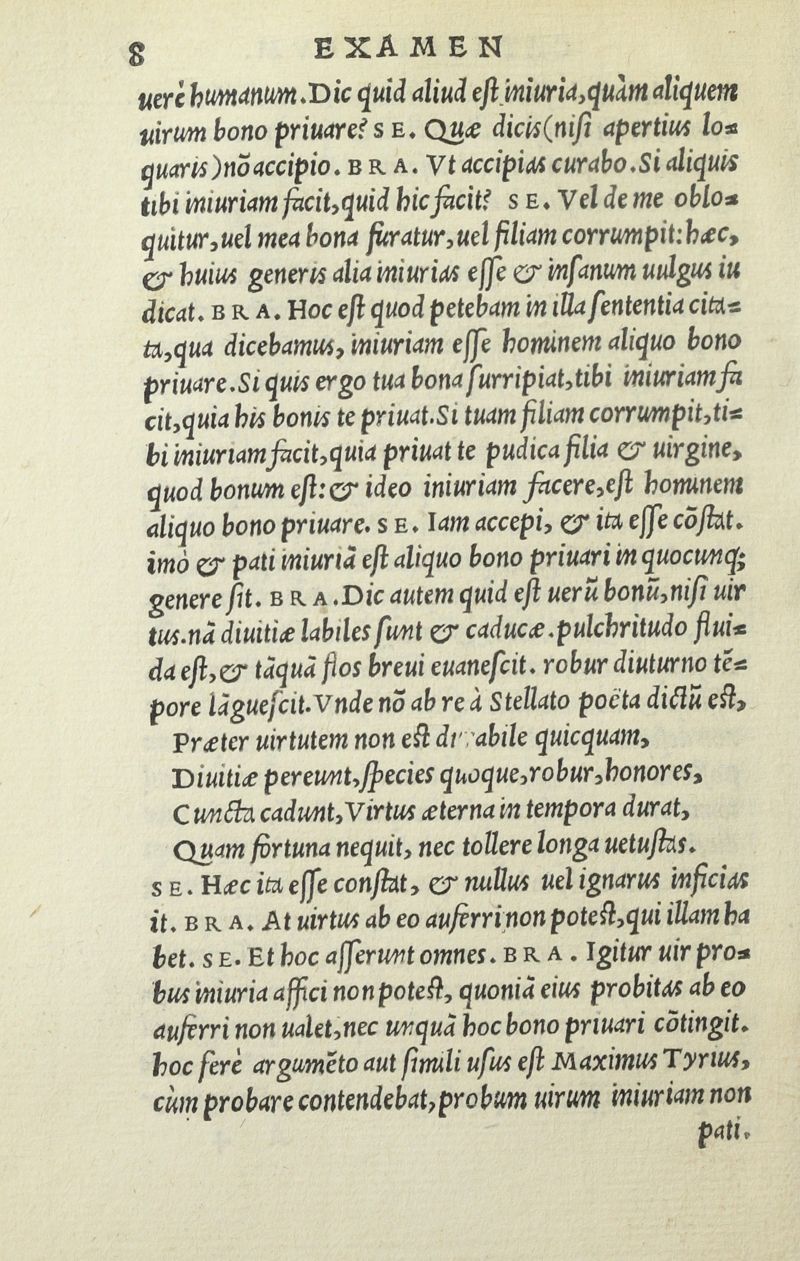 8 EXAMEN
uerè humanum. Dic quid aliud eſt iniuria, quàm aliquem
uirum bono priuare? SE. Quæ dicis (niſi apertius lo=
quaris) nõ accipio. BRA. Vt accipias curabo. Si aliquis
tibi iniuriam facit, quid hic facit? SE. Vel de me oblo=
quitur, uel mea bona furatur, uel filiam corrumpit: hæc,
& huius generis alia iniurias eſſe & inſanum uulgus iu
dicat. BRA. Hoc eſt quod petebam in illa ſententia cita=
ta, qua dicebamus, iniuriam eſſe hominem aliquo bono
priuare. Si quis ergo tua bona ſurripiat, tibi iniuriam fa
cit, quia his bonis te priuat. Si tuam filiam corrumpit, ti=
bi iniuriam facit, quia priuat te pudica filia & uirgine,
quod bonum eſt: & ideo iniuriam facere, eſt hominem
aliquo bono priuare. SE. Iam accepi, & ita eſſe cõſtat.
imò & pati iniuriã eſt aliquo bono priuari in quocunq;
genere ſit. BRA. Dic autem quid eſt uerũ bonũ, niſi uir
tus. nã diuitiæ labiles ſunt & caducæ. pulchritudo flui=
da eſt, & tãquã flos breui euaneſcit. robur diuturno tẽ=
pore lãgueſcit. Vnde nõ ab re à Stellato poëta dictũ eſt,
Præter uirtutem non eſt quicquam,
Diuitiæ pereunt, ſpecies quoque, robur, honores,
Cuncta cadunt, Virtus æterna in tempora durat,
Quam fortuna nequit, nec tollere longa uetuſtas.
SE. Hæc ita eſſe conſtat, & nullus uel ignarus inficias
it. BRA. At uirtus ab eo auferri non poteſt, qui illam ha
bet. SE. Et hoc aſſerunt omnes. BRA. Igitur uir pro=
bus iniuria affici non poteſt, quoniã eius probitas ab eo
auferri non ualet, nec unquã hoc bono priuari cõtingit.
hoc ferè argumẽto aut ſimili uſus eſt Maximus Tyrius,
cùm probare contendebat, probum uirum iniuriam non
pati.